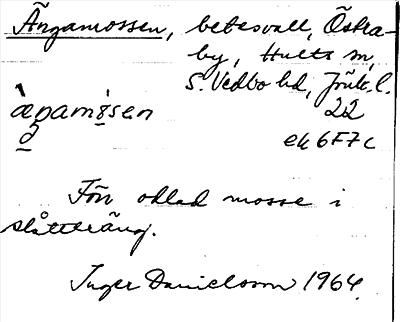 Ängamossen, betesvall, Östra-
by, Hults sn,
S. Vedbo hd, Jönk. l.
22
ek 6F7c
Förr odlad mosse i
slåtteräng.
Inger Danielsson 1964